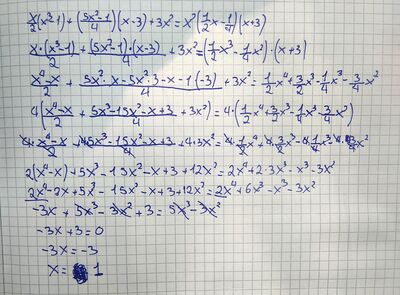 x/2(x³-1)+(5x²-1/4)(x-3)+3x²=x²(1/2x-1/4)(x+3)
x·(x³-1)/2+(5x²-1)·(x-3)/4+3x²=(1/2x³-1/4x²)·(x+3)
x⁴-x/2+5x²·x-5x²·3-x-1(-3)/4+3x²=1/2x⁴+3/2x³-1/4x³-3/4x²
4(x⁴-x/2+5x³-15x²-x+3/4+3x²)=4·(1/2x⁴+3/2x³-1/4x³-3/4x²)
4·x⁴-x/2+4·5x³-15x²-x+3/4+4·3x²=4·1/2x⁴+4·3/2x³-4·1/4x³-4·3/4x²
2(x⁴-x)+5x³-15x²-x+3+12x²=2x⁴+2·3x³-x³-3x²
2x⁴-2x+5x³-15x²-x+3+12x²=2x⁴+6x³-x³-3x²
-3x+5x³-3x²+3=5x³-3x²
-3x+3=0
-3x=-3
x=1